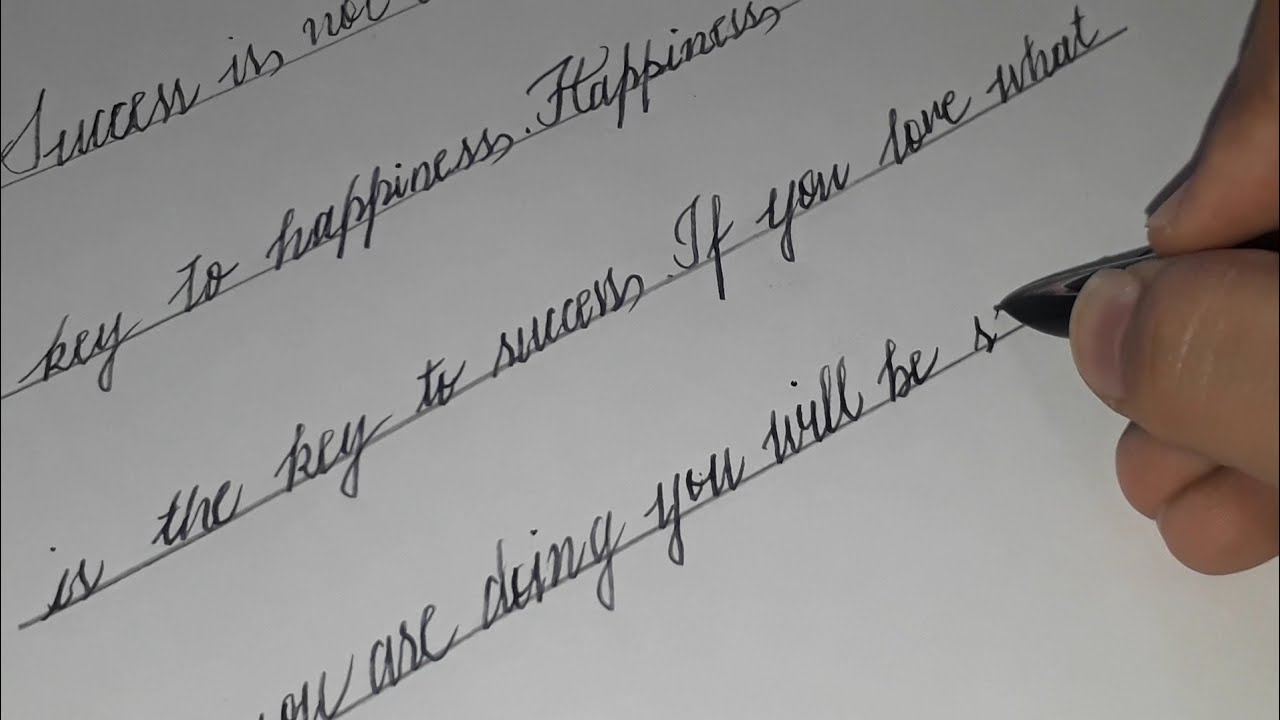 Success is not
key to happiness. Happiness
is the key to success. If you love what
you are doing you will be s